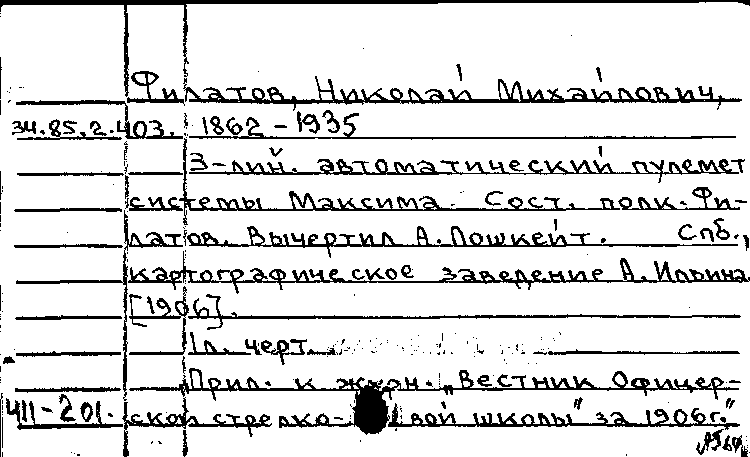 Филатов, Николай Михайлович,
34.85.2.403. 1862-1935
3-лин. автоматический пулемет
системы Максима. Сост. полк. Фи-
латов. Вычертил А. Лошкейт. Спб.,
картографическое заведение А. Ильина
[1906].
1л. черт.
Прил. к журн. „Вестник Офицер-
411-201. ской стрелко- вой школы" за 1906г."